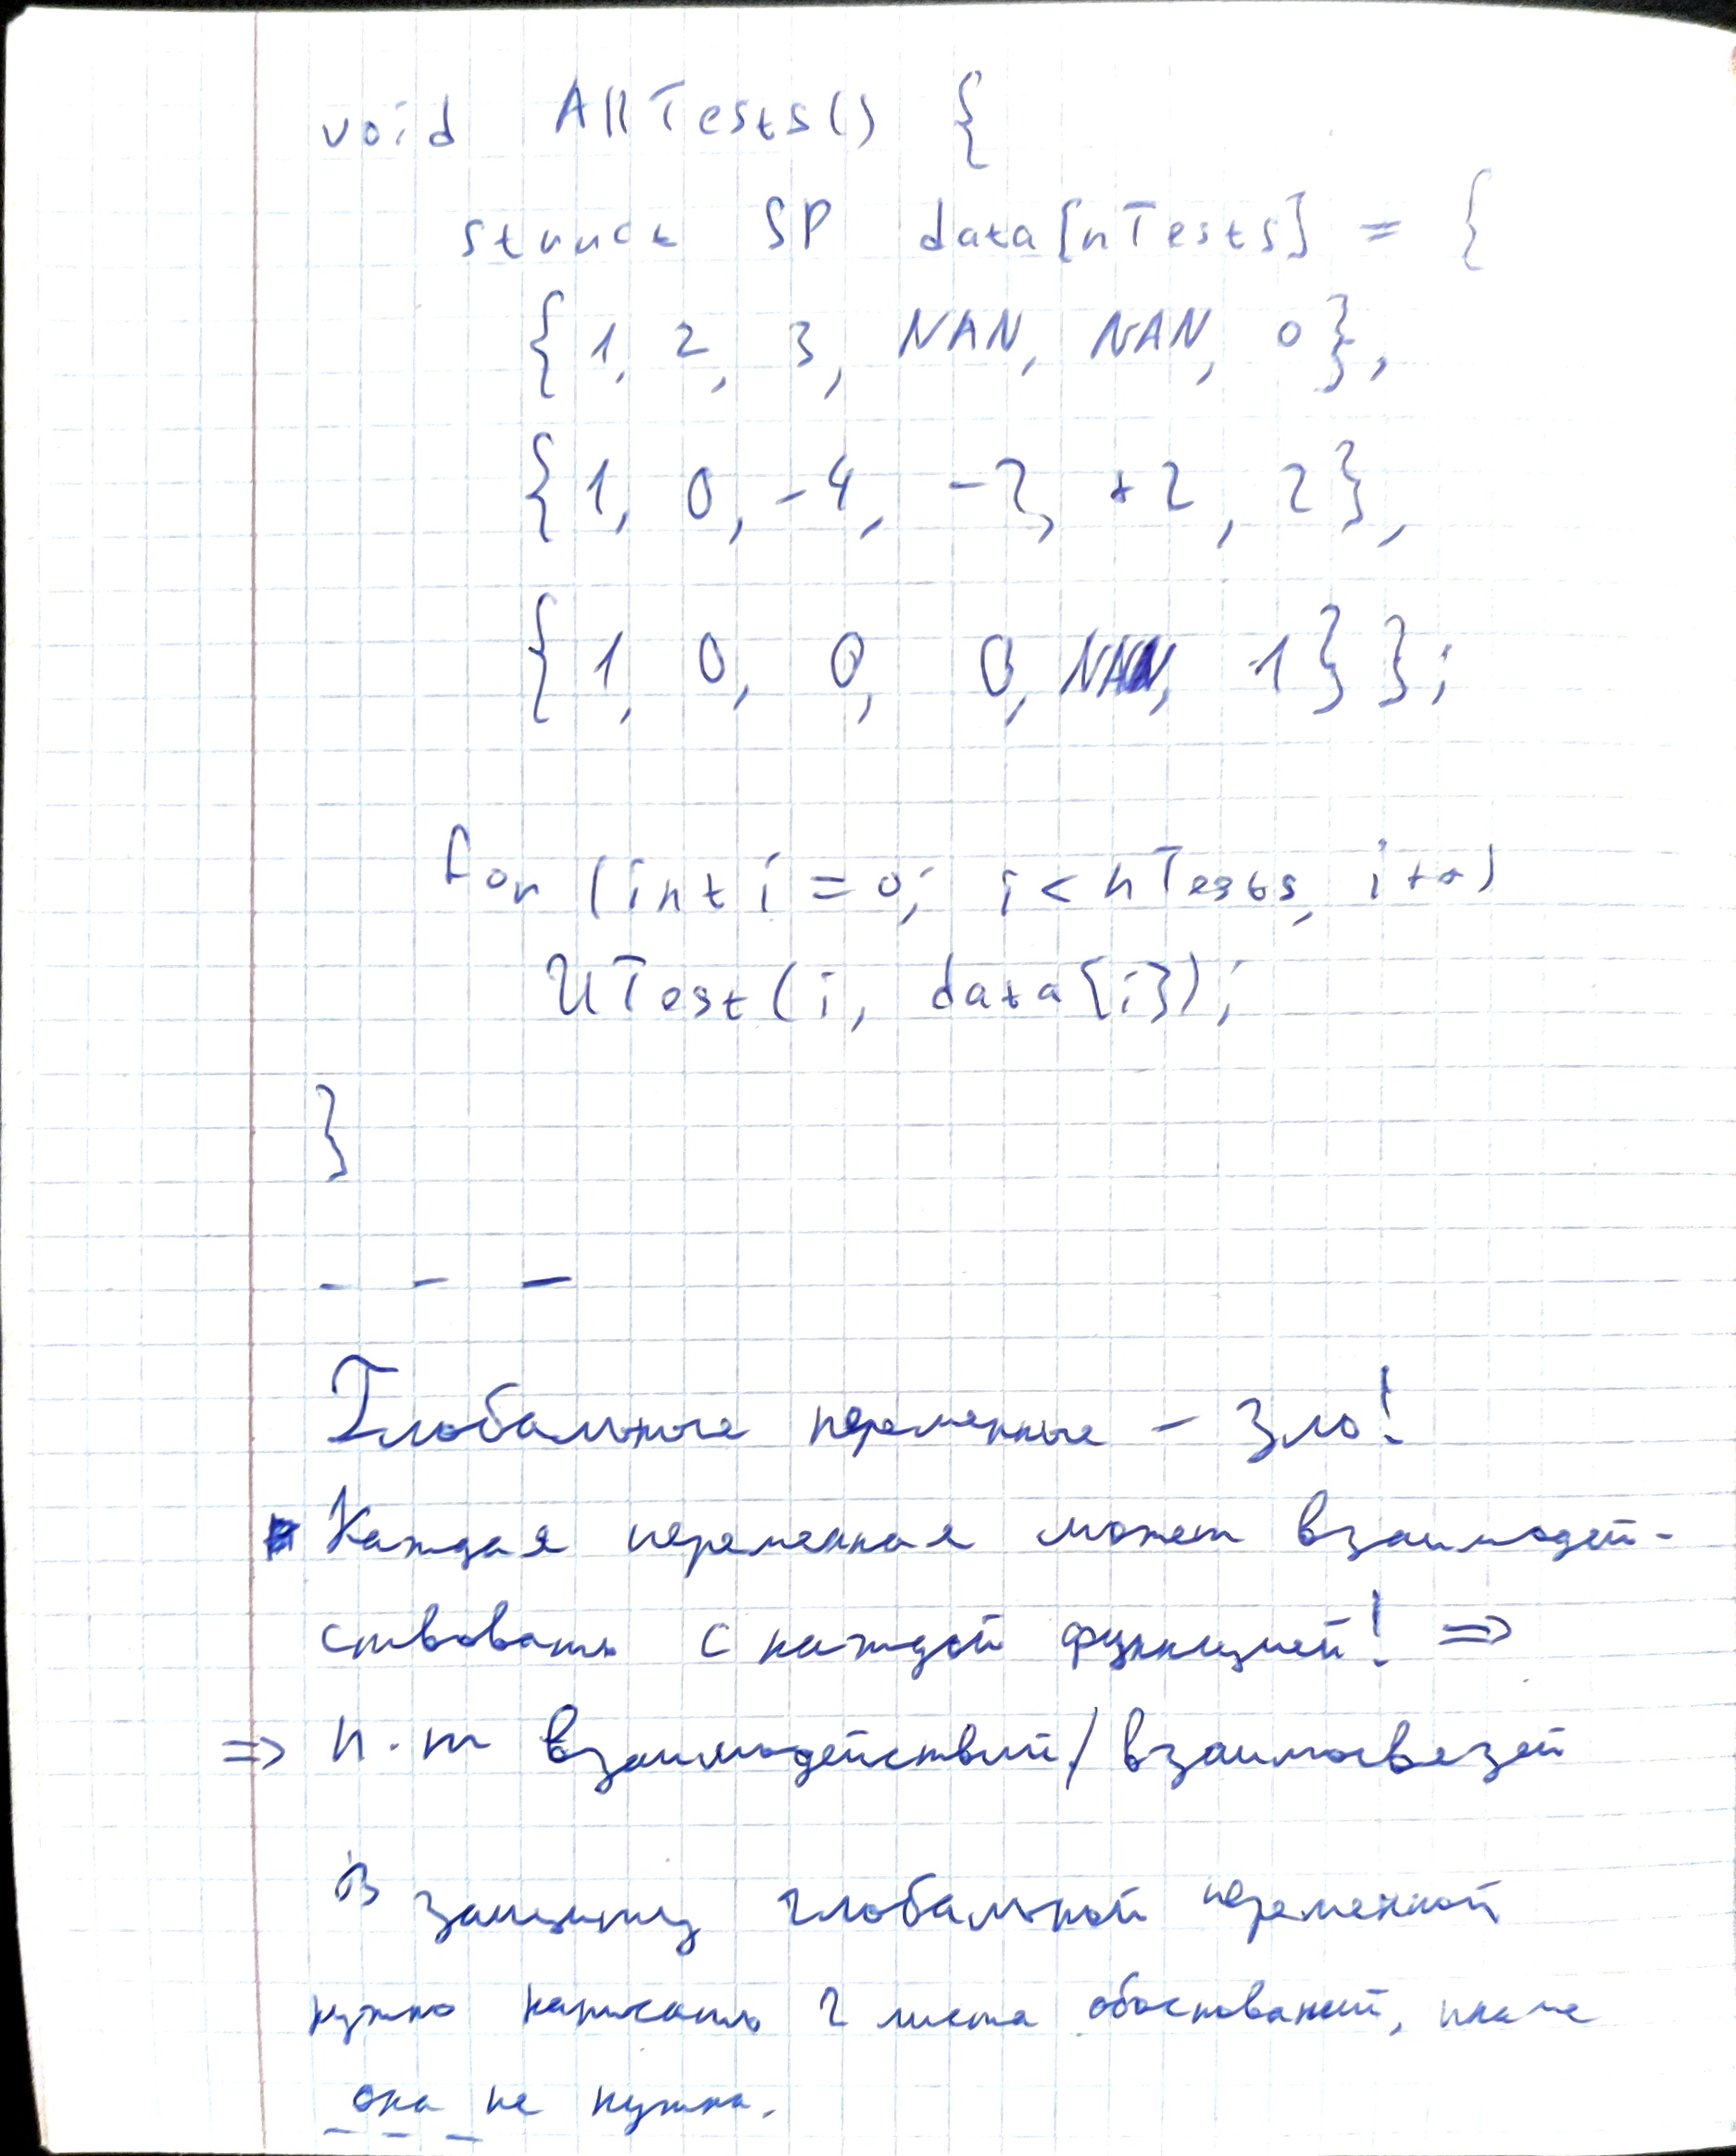 void AllTests() {
struct SP data[nTests] = {
{1, 2, 3, NAN, NAN, 0},
{1, 0, -4, -2, +2, 2},
{1, 0, 0, 0, NAN, 1} };
for (int i = 0; i < nTests, i++)
UTest(i, data[i]);
}
- - -
Глобальные переменные - Зло!
Каждая переменная может взаимодей-
ствовать с каждой функцией! =>
=> n·m взаимодействий/взаимосвязей
В защиту глобальной переменной
нужно написать 2 листа обоснований, иначе
она не нужна.